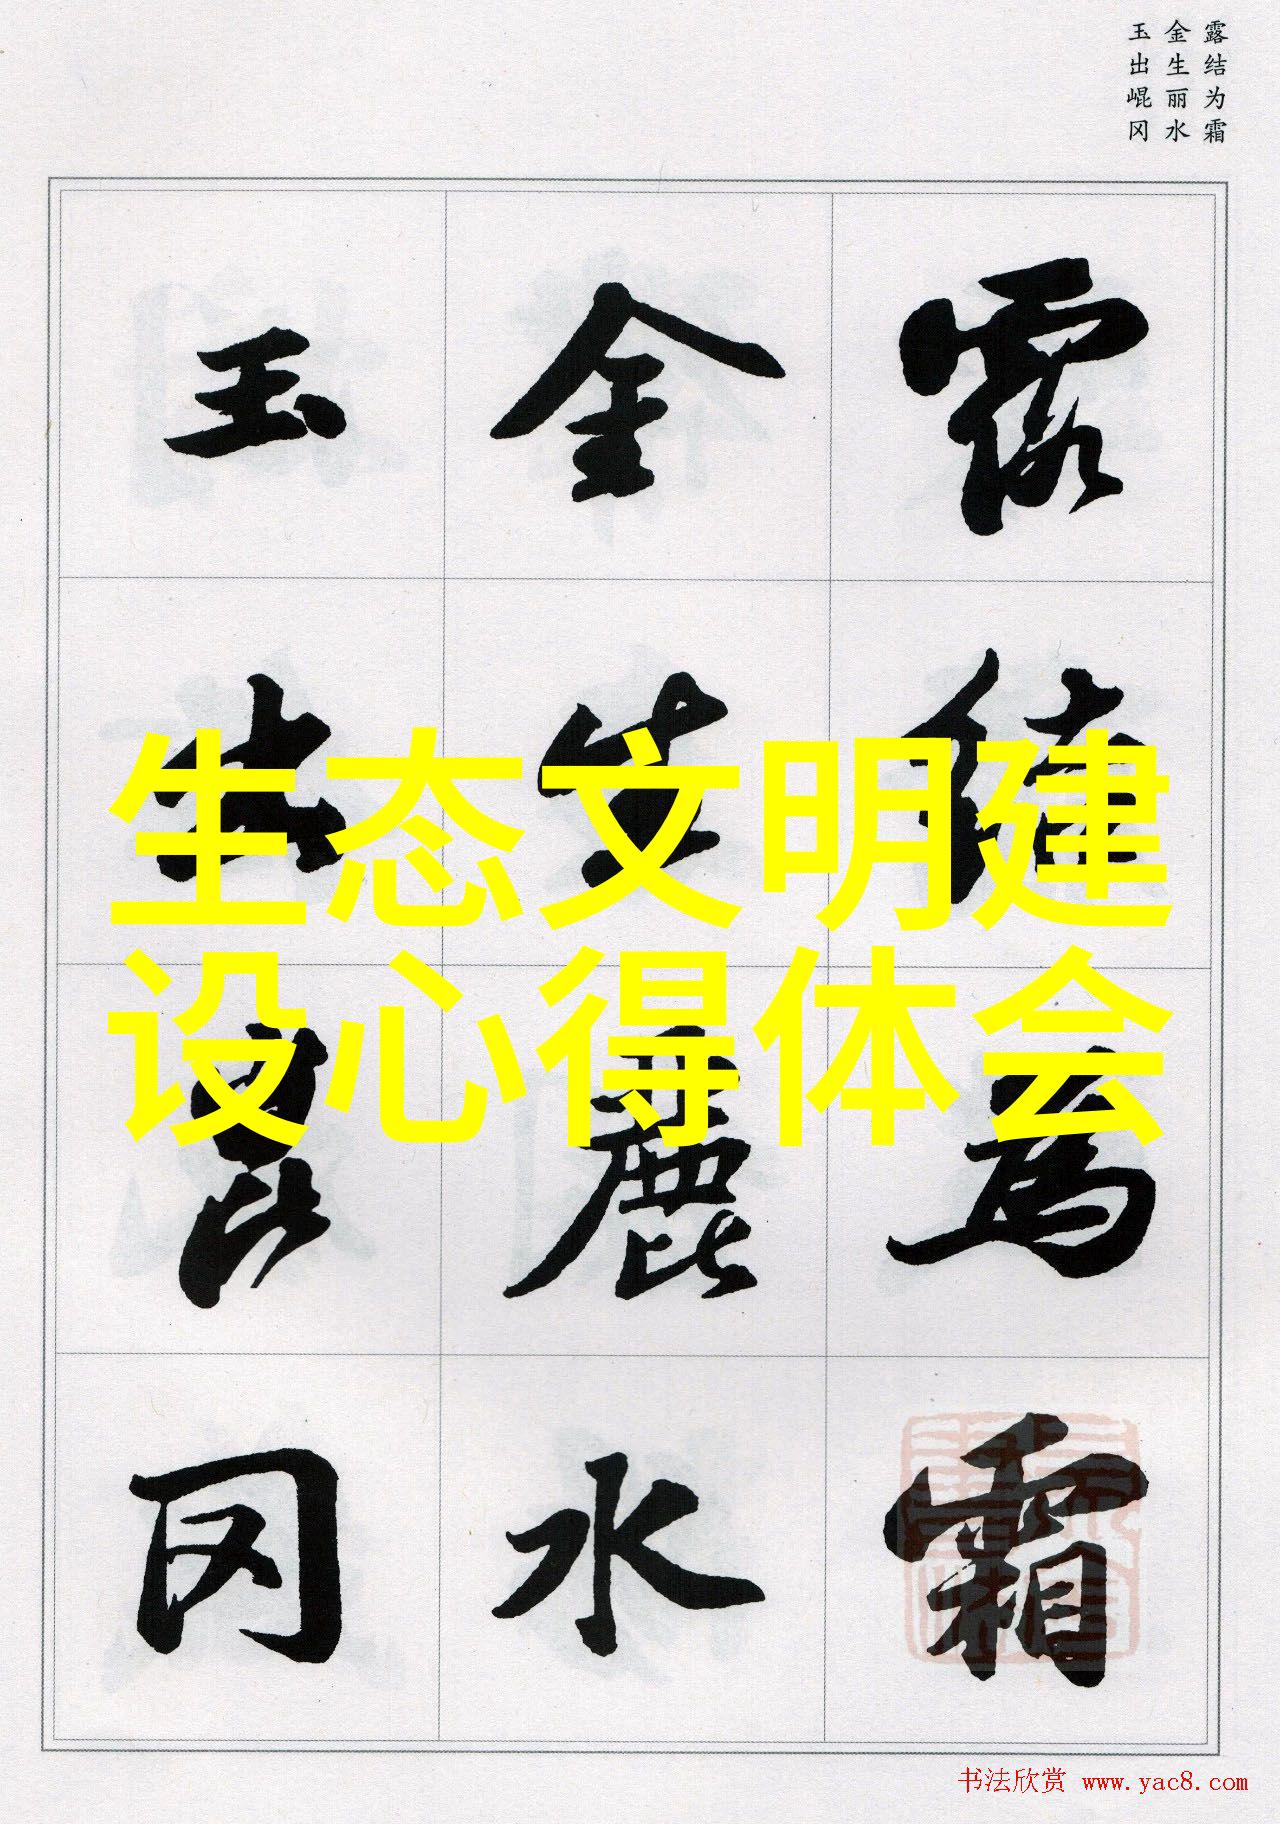 露结为霜
金生丽水
玉出崐冈
露結為霜
金生麗水
玉出崑冈
生态文明建
设心得体会
书法欣赏 www.yac8.com